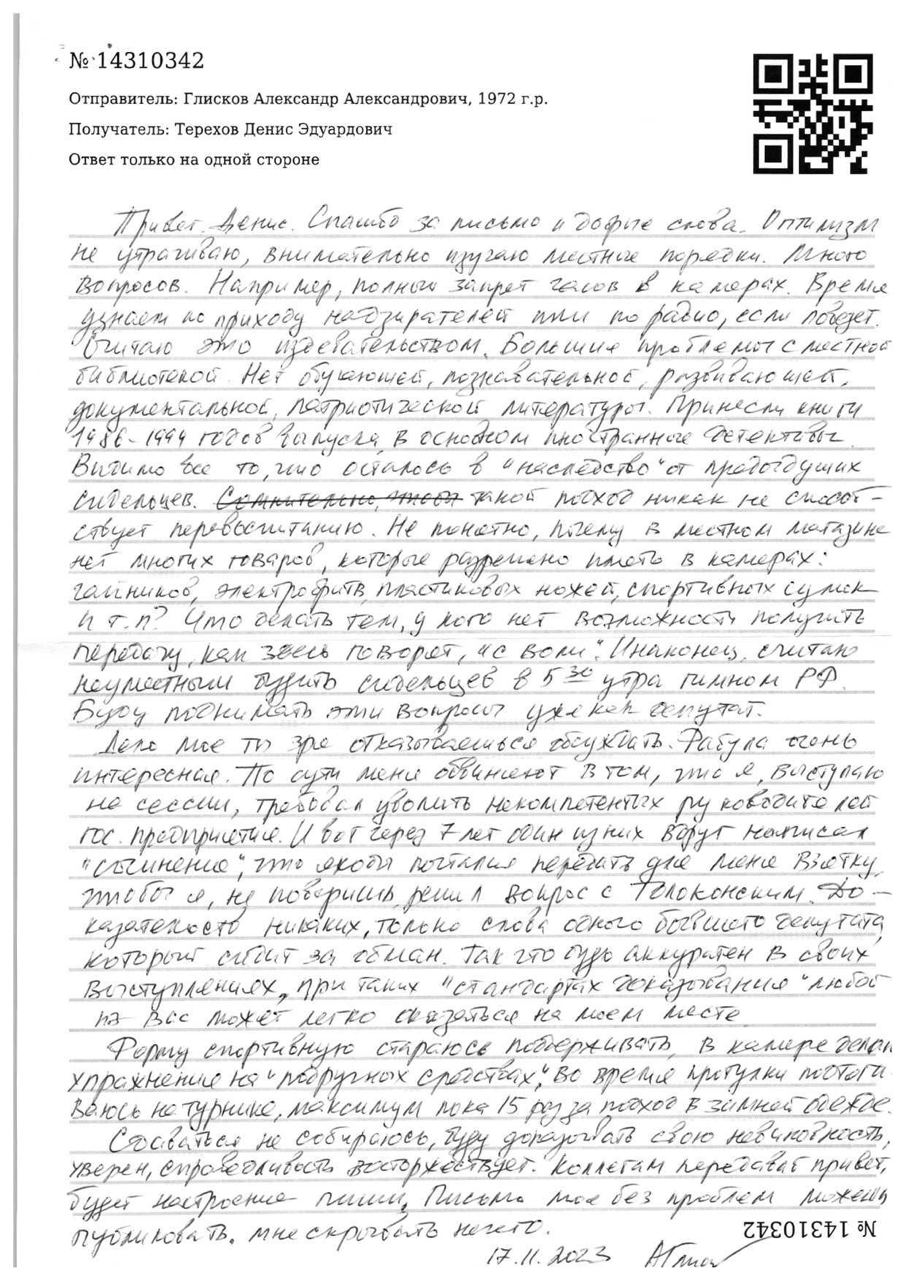 № 14310342
Отправитель: Глисков Александр Александрович, 1972 г.р.
Получатель: Терехов Денис Эдуардович
Ответ только на одной стороне
Привет, Денис. Спасибо за письмо и добрые слова. Оптимизм
не утрачиваю, внимательно изучаю местные порядки. Много
вопросов. Например, полный запрет часов в камерах. Время
узнаем по приходу надзирателей или по радио, если повезет.
Считаю это издевательством. Большие проблемы с местной
библиотекой. Нет обучающей, познавательной, развивающей,
документальной, патриотической литературы. Принесли книги
1986-1994 годов выпуска, в основном иностранные детективы.
Видимо все то, что осталось в "наследство" от предыдущих
сидельцев. такой подход никак не способ-
ствует перевоспитанию. Не понятно, почему в местном магазине
нет многих товаров, которые разрешено иметь в камерах:
чайников, электробритв, пластиковых ножей, спортивных сумок
и т.п? Что делать тем, у кого нет возможности получить
передачу, как здесь говорят, "с воли". И наконец, считаю
неуместным будить сидельцев в 5 30 утра гимном РФ.
Буду поднимать эти вопросы уже как депутат.
Дело мое ты зря отказываешься обсуждать. Фабула очень
интересная. По сути меня обвиняют в том, что я, выступая
на сессии, требовал уволить некомпетентных руководителей
гос. предприятия. И вот через 7 лет один из них вдруг написал
"сочинение", что якобы пытался передать для меня взятку,
чтобы я, не поверишь, решил вопрос с Толоконским. До-
казательств никаких, только слова одного бывшего депутата,
который сидит за обман. Так что будь аккуратен в своих
выступлениях, при таких "стандартах доказывания" любой
из вас может легко оказаться на моем месте.
Форму спортивную стараюсь поддерживать, в камере делаю
упражнения на "подручных средствах", во время прогулки подтяги-
ваюсь на турнике, максимум пока 15 раз за подход в зимней одежде.
Сдаваться не собираюсь, буду доказывать свою невиновность,
уверен, справедливость восторжествует. Коллегам передавай привет,
будет настроение пиши. Письмо мое без проблем можешь
публиковать, мне скрывать нечего.
17.11.2023
№ 14310342